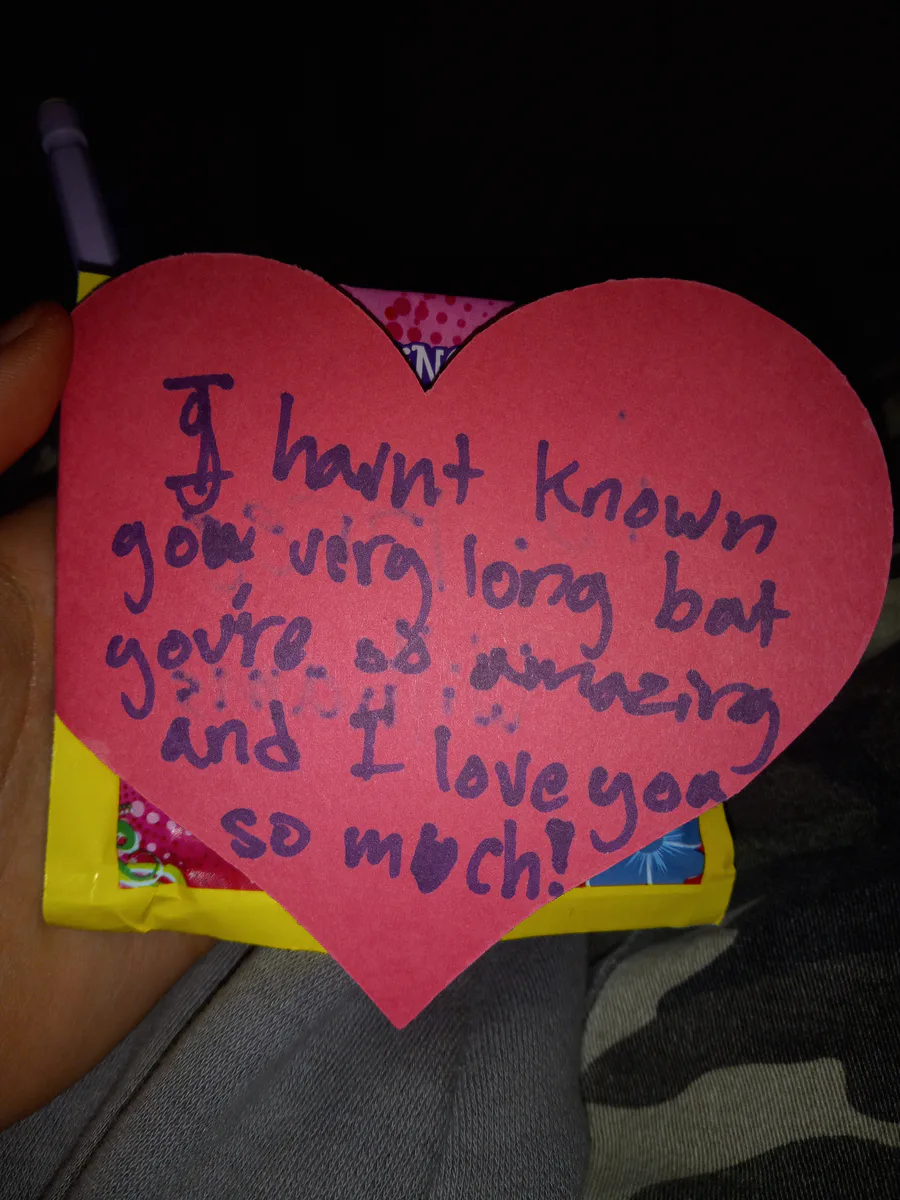 I havnt known
you very long but
you're so amazing
and I love you
so much!